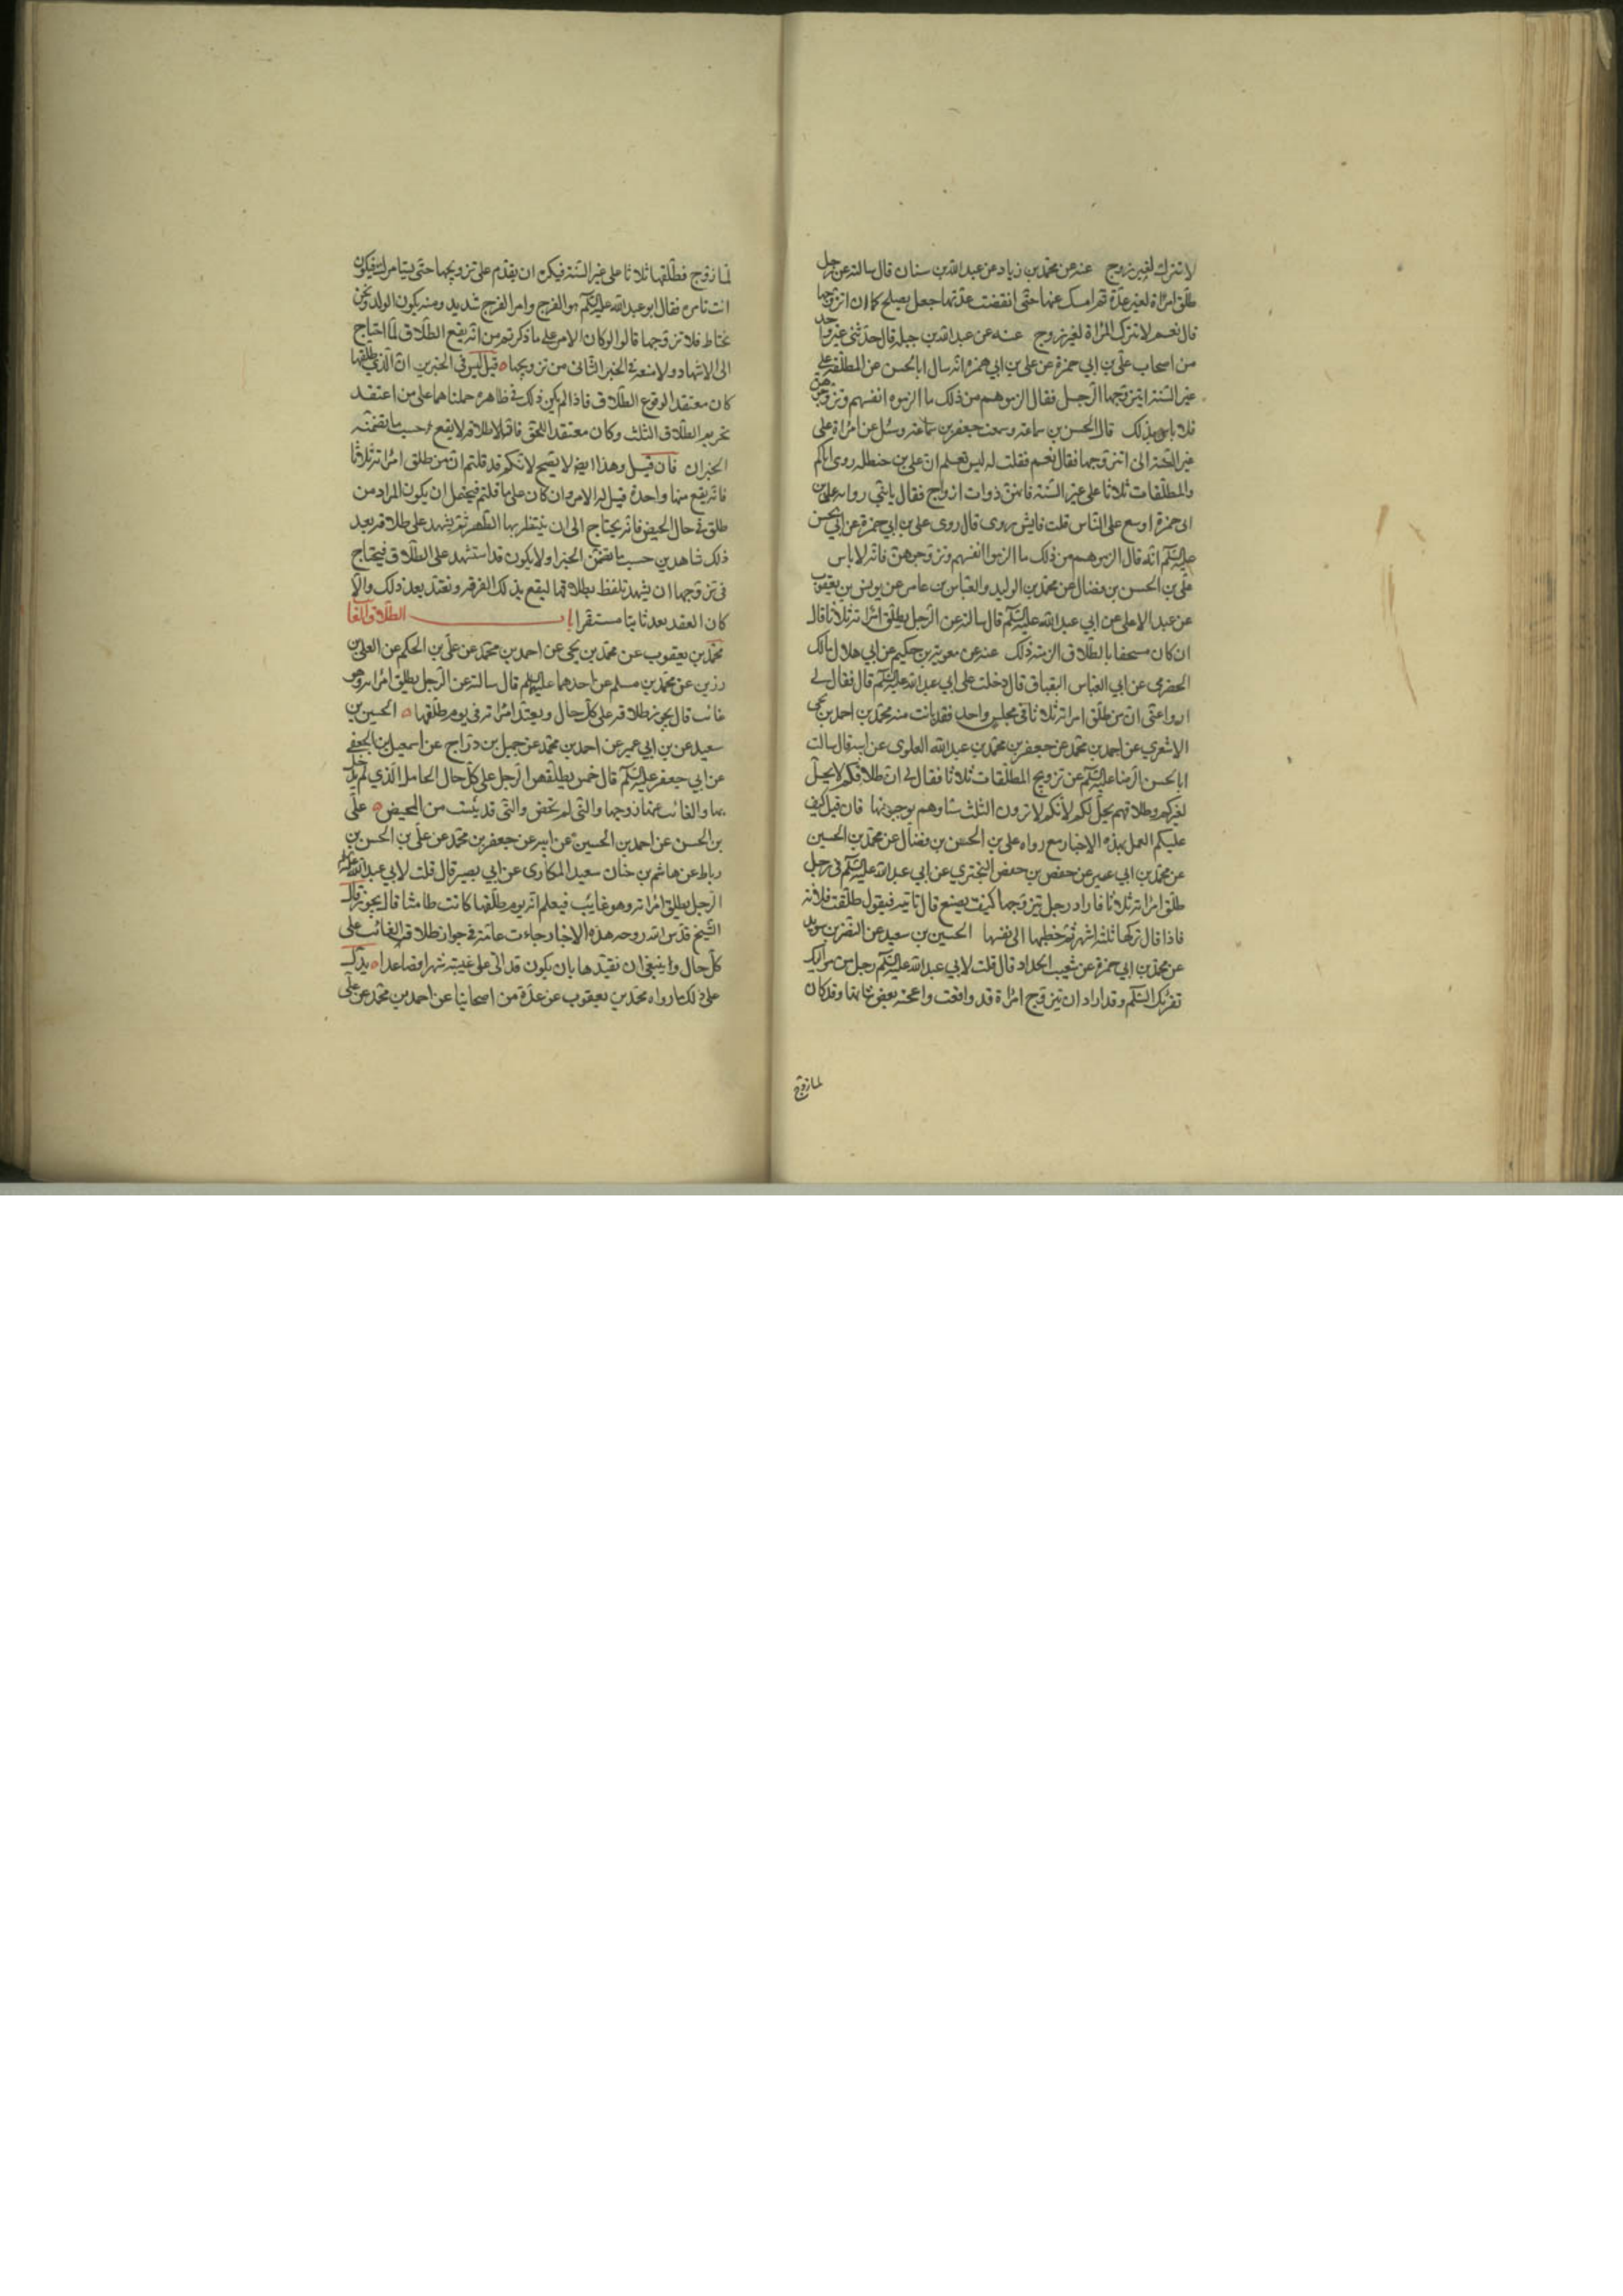 لا تترك لغير زوج عنه عن محمد بن زياد عن عبد الله بن سنان قال سالته عن رجل
طلق امراة لغير عدة ثم امسك عنها حتى انقضت عدتها جعل يصلح كا ان اتزوجها
قال نعم لا تترك المراة لغير زوج عنه عن عبد الله بن جبله قال حدثنى غير واحد
من اصحاب على بن ابي حمزة عن على بن ابي حمزه انه سال ابا الحسن عن المطلقة على
غير السنة ايتزوجها الرجل فقال الزموهم من ذلك ما الزموه انفسهم وتزوجوهن
فلا باس بذلك قال الحسن بن سماعة وسمعت جعفر بن سماعة وسئل عن امراة على
غير السنة الى اتزوجها فقال نعم فقلت له ليس تعلم ان على بن حنظله روى اياكم
والمطلقات ثلاثا على غير السنة فانهن ذوات ازواج فقال يابنى رواية على بن
ابى حمزة اوسع على الناس قلت فايش روى قال روى على بن ابي حمزة عن ابي الحسن
عليه السلم انه قال الزموهم من ذلك ما الزموا انفسهم وتزوجوهن فانه لا باس
على بن الحسن بن فضال عن محمد بن الوليد والعباس بن عامر عن يونس بن يعقوب
عن عبد الاعلى عن ابي عبد الله عليه السلم قال سالته عن الرجل يطلق امراته ثلاثا قال
ان كان مستخفا بالطلاق الزمته ذلك عنه عن معوية بن حكيم عن ابي هلال مالك
الحضرمى عن ابي العباس البقباق قال دخلت على ابي عبد الله عليه السلم قال فقال لى
ارو اعنى ان من طلق امراته ثلاثا فى مجلس واحد فقد بانت منه محمد بن احمد بن يحيى
الاشعرى عن احمد بن محمد عن جعفر بن محمد بن عبد الله العلوى عن ابيه قال سالت
ابا الحسن الرضا عليه السلم عن تزويج المطلقات ثلاثا فقال لى ان طلاقكم لا يحل
لغيركم وطلاقهم يحل لكم لانكم لا ترون الثلث شيئا وهم يوجبونها فان قيل كيف
عليكم العمل بهذه الاخبار مع رواه على بن الحسن بن فضال عن محمد بن الحسين
عن محمد بن ابي عمير عن حفص بن حفص البخترى عن ابي عبد الله عليه السلم فى رجل
طلق امراته ثلاثا فاراد رجل يتزوجها كيف يصنع قال تاتيه فيقول طلقت فلانة
فاذا قال تركها ثلثة اشهر ثم خطبها الى نفسها الحسين بن سعيد عن النضر بن سويد
عن محمد بن ابي حمزة عن شعيب الحداد قال قلت لابي عبد الله عليه السلم رجل من مواليك
تقرئك السلم وقد اراد ان يتزوج امراة قد وافقت واعجبه بعض شانها وقد كان
لها زوج
لها زوج فطلقها ثلاثا على غير السنة فيكره ان يقدم على تزويجها حتى يستامرك فيكون
انت تامره فقال ابو عبد الله عليه السلم هو الفرج وامر الفرج شديد ومنه يكون الولد ونحن
نحتاط فلا تزوجها قالوا لو كان الامر على ما ذكرتم من انه يقع الطلاق لما احتاج
الى الاشهاد ولا منعه فى الخبر الثانى من تزويجها قيل ليس فى الخبرين ان الذي طلقها
كان معتقدا لوقوع الطلاق فاذا لم يكن ذلك فى ظاهره حملناهما على من اعتقد
تحريم الطلاق الثلث وكان معتقدا للحق فاقبل لاطلاقه لا يقع حسب ما تضمنه
الخبران فان قيل وهذا ايضا لا يصح لانكم قد قلتم ان من طلق امراته ثلاثا
فانه يقع منها واحدة قيل له الامر وان كان على ما قلتم فيحتمل ان يكون المراد من
طلق فى حال الحيض فانه يحتاج الى ان ينتظر بها الطهر ثم يشهد على طلاقه بعد
ذلك شاهدين حسب ما تضمن الخبر اولا يكون قد استشهد على الطلاق فيحتاج
فى تزوجها ان يشهد تلفظ بطلاقها ليقع بذلك الفرقه وتعتد بعد ذلك والا
كان العقد بعد ثابتا مستقرا باب الطلاق الغا
محمد بن يعقوب عن محمد بن يحيى عن احمد بن محمد عن على بن الحكم عن العلا بن
رزين عن محمد بن مسلم عن احدهما عليهما السلم قال سالته عن الرجل يطلق امراته وهو
غائب قال يجوز طلاقه على كل حال وتعتد امراته فى يوم طلقها الحسين بن
سعيد عن بن ابي عمير عن احمد بن محمد عن جميل بن دراج عن اسمعيل بن الجعفى
عن ابي جعفر عليه السلم قال خمس يطلقهن الرجل على كل حال الحامل الذي لم يدخل
بها والغائب عنها زوجها والتى لم تحض والتى قد يئست من المحيض على
بن الحسن عن احمد بن الحسين عن ابيه عن جعفر بن محمد عن على بن الحسن بن
رباط عن هاشم بن حنان سعيد المكارى عن ابي بصير قال قلت لابي عبد الله عليه السلم
الرجل يطلق امراته وهو غايب فيعلم انه يوم طلقها كانت طامثا قال يجوز قال
الشيخ قدس الله روحه هذه الاخبار جاءت عامة فى جواز طلاق الغائب على
كل حال وينبغى ان نقيدها بان يكون قد اتى على غيبته شهر فصاعدا يدل
على ذلك ما رواه محمد بن يعقوب عن عدة من اصحابنا عن احمد بن محمد عن على